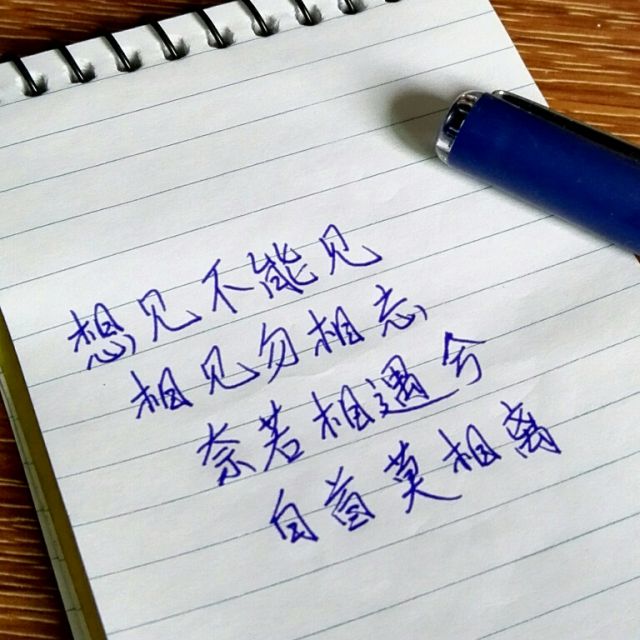 想见不能见
相见勿相忘
奈若相遇兮
白首莫相离